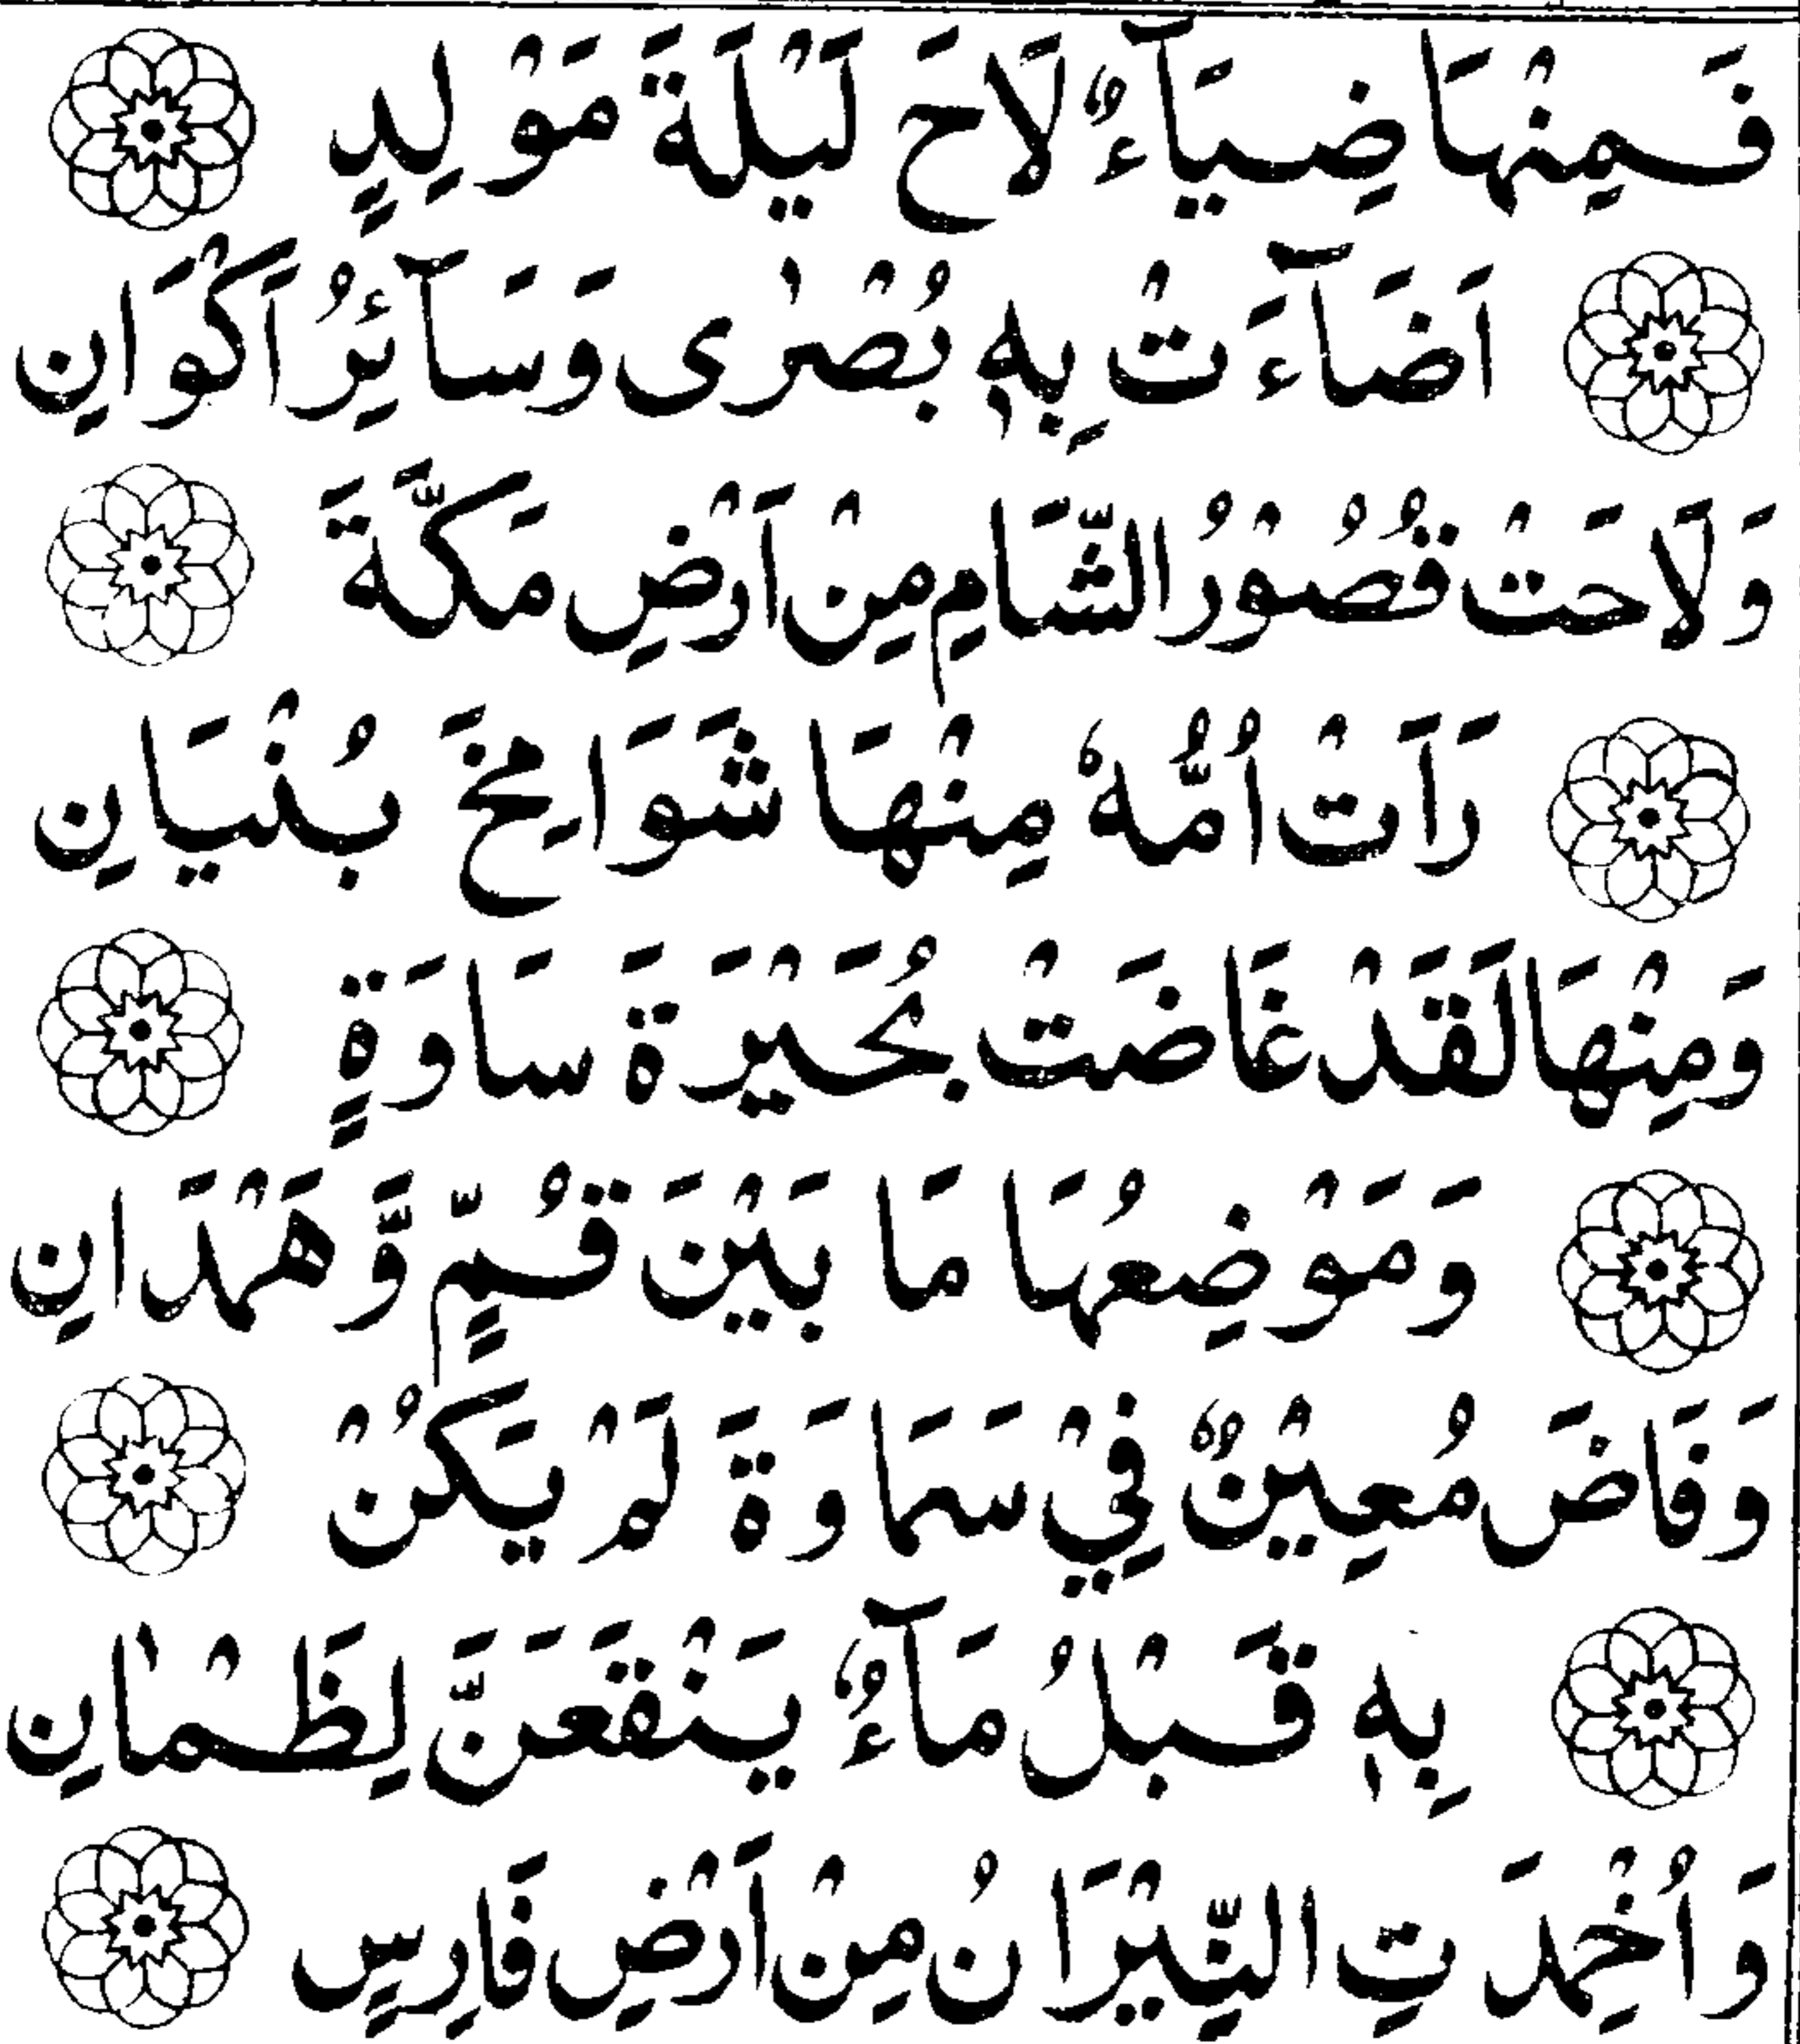 فَمِنْهَا ضِيَآءٌ لَاحَ لَيْلَةَ مَوْلِدٍ
اَضَآءَتْ بِهٖ بُصْرٰى وَسَآئِرُ اَكْوَانِ
وَلَاحَتْ قُصُوْرُ الشَّامِ مِنْ اَرْضِ مَكَّةَ
رَاَتْ اُمُّهٗ مِنْهَا شَوَامِخَ بُنْيَانِ
وَمِنْهَا لَقَدْ غَاضَتْ بُحَيْرَةَ سَاوَةٍ
وَمَوْضِعُهَا مَا بَيْنَ قُمٍّ وَّهَمْدَانِ
وَفَاضَ مُعِيْنٌ فِيْ سَمَاوَةَ لَمْ يَكُنْ
بِهٖ قَبْلُ مَآءٌ يَنْقَعَنَّ لِظَمْاٰنِ
وَاُخْمِدَتِ النِّيْرَانُ مِنْ اَرْضِ فَارِسٍ